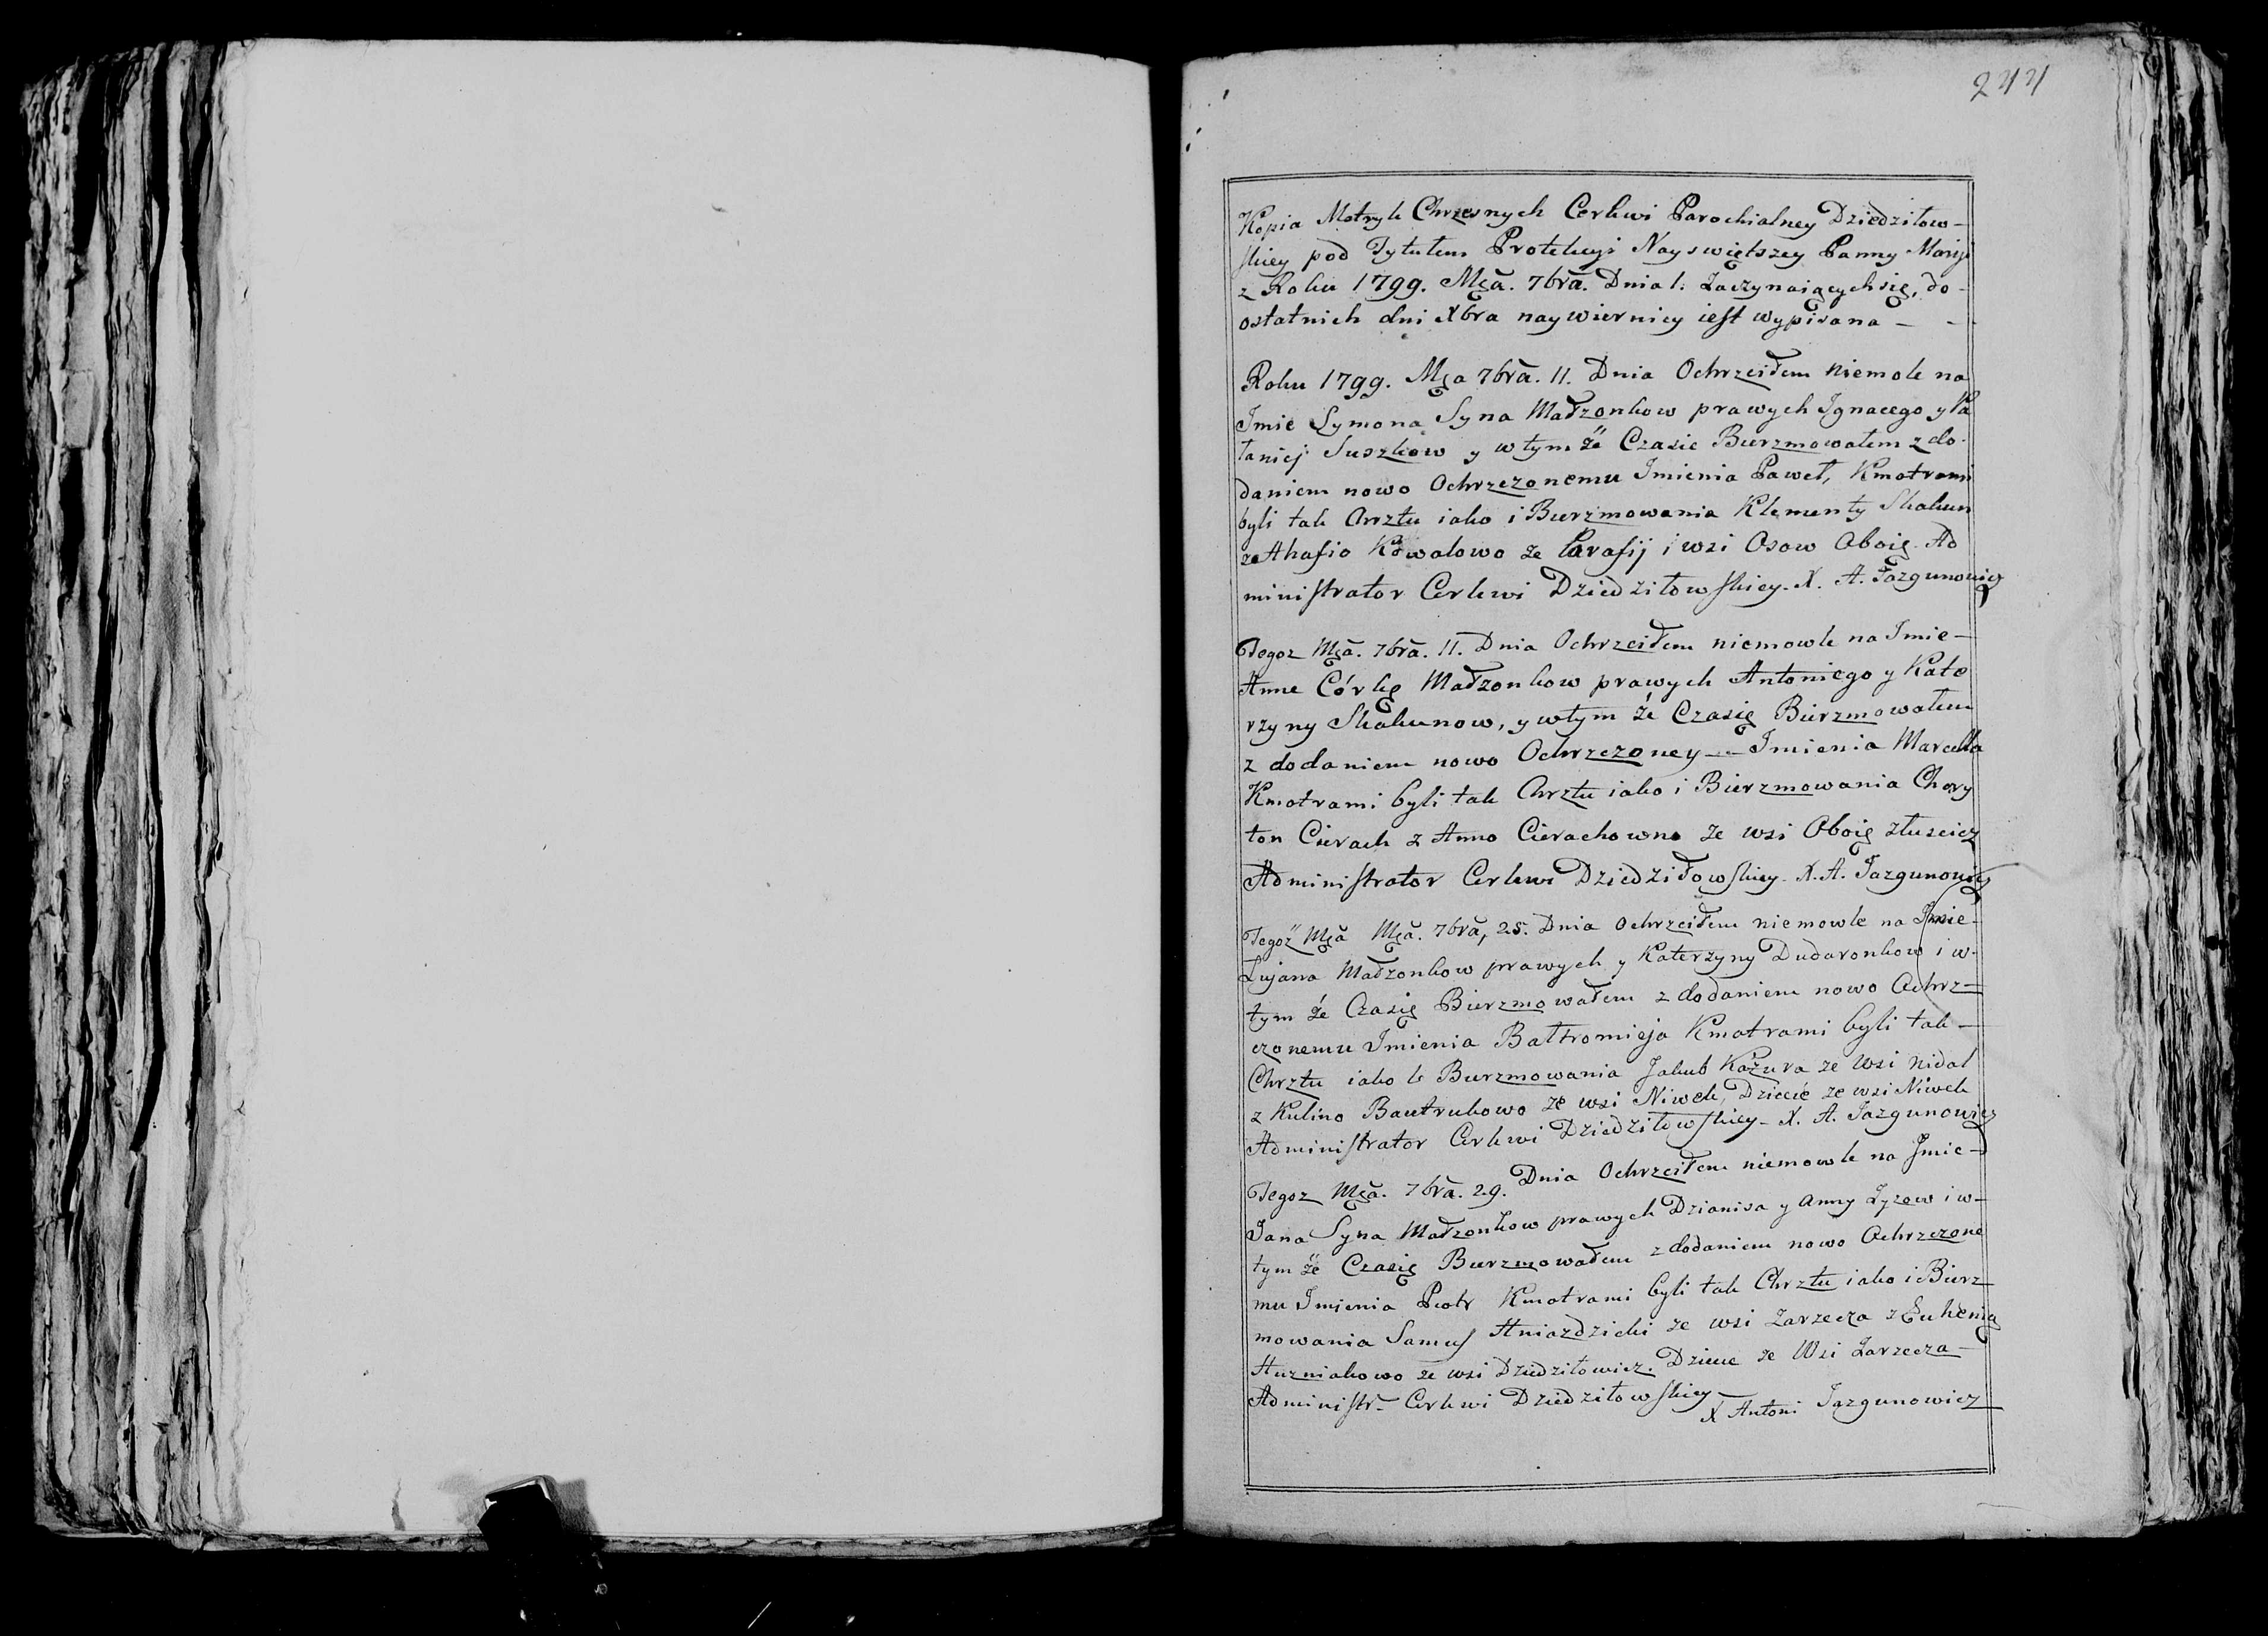 244
Kopia Metryk Chrzesnych Cerkwi Parochialney Dziedziłow-
skiey pod Tytułem Protekcyi Nayswiętszey Panny Maryi
z Roku 1799. Mca. 7bra. Dnia 1. Zaczynaiącychsię, do-
ostatnich dni Xbra naywierniey iest wypisana -
Roku 1799. Mca 7bra. 11. Dnia Ochrzciłem niemole na
Imie Symona Syna Małżonkow prawych Ignacego y Ta
taniej Suszkow y wtym że Czasie Bierzmowałem z do-
daniem nowo Ochrzczonemu Imienia Paweł, Kmotrami
byli tak Chrztu iako i Bierzmowania Klementy Skakun
z Ahafio Kowalowo ze Parafij i wsi Osow Oboie. Ad
ministrator Cerkwi Dziedziłowskiey. X. A. Jazgunowicz
Tegoz Mca. 7bra. 11. Dnia Ochrzciłem niemowle na Imie-
Anne Córkę Małżonkow prawych Antoniego y Kata
rzyny Skakunow, y wtym że Czasię Bierzmowałem
z dodaniem nowo Ochrzczoney - Imienia Marcella
Kmotrami byli tak Chrztu iako i Bierzmowania Chary
ton Cierach z Anno Cierachowno ze wsi Oboię złuscicz
Administrator Cerkwi Dziedziłowskiey. X. A. Jazgunowicz
Tegoż Mca Mca. 7bra, 25. Dnia Ochrzciłem niemowle na Imie-
Lujana Małżonkow prawych y Katerzyny Dudaronkow i w-
tym że Czasię Bierzmowałem z dodaniem nowo Ochrz-
czonemu Imienia Bałtromieja Kmotrami byli tak-
Chrztu iako i Bierzmowania Jakub Każura ze wsi Nidal
z Kulino Bautrukowo ze wsi Niwek, Dziecie ze wsi Niwek
Administrator Cerkwi Dziedziłowskiey - X. A. Jazgunowicz
Tegoz Mca. 7bra. 29. Dnia Ochrzciłem niemowle na Imie-
Jana Syna Małżonkow prawych Dzianisa y Anny Zyzew i w-
tym że Czasię Bierzmowałem z dodaniem nowo Ochrzczone
mu Imienia Piotr Kmotrami byli tak Chrztu iako i Bierz
mowania Samus Hniazdzicki ze wsi Zarzecza z Euhenią
Huzniakowo ze wsi Dziedziłowicz. Dziecie ze Wsi Zarzecza-
Administr- Cerkwi Dziedziłowskiey
X Antoni Jazgunowicz